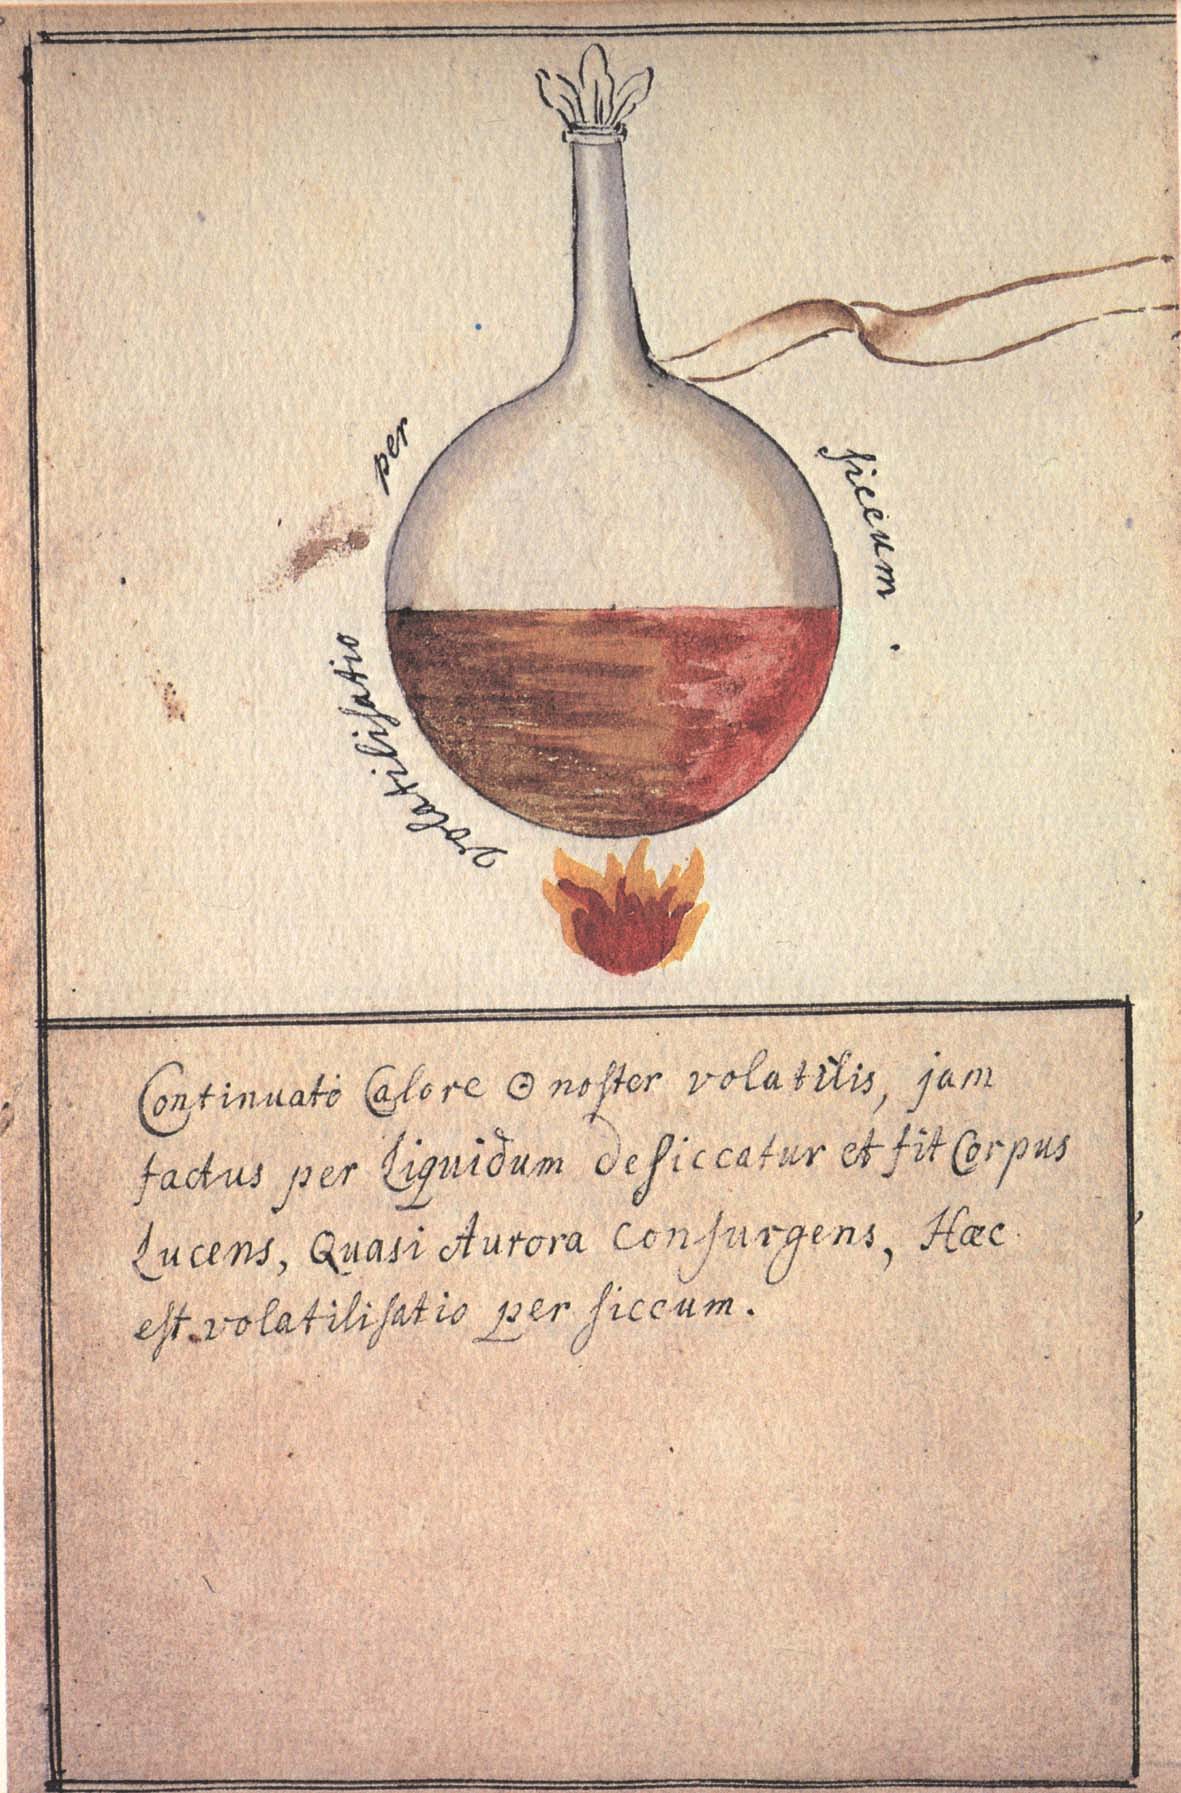 volatiliſatio per ſiccum.
Continuatô Calore ☉ noſter volatilis, jam
factus per Liquidum deſiccatur et fit Corpus
Lucens, Quasi Aurora Conſurgens, Hæc
eſt volatiliſatio per ſiccum.